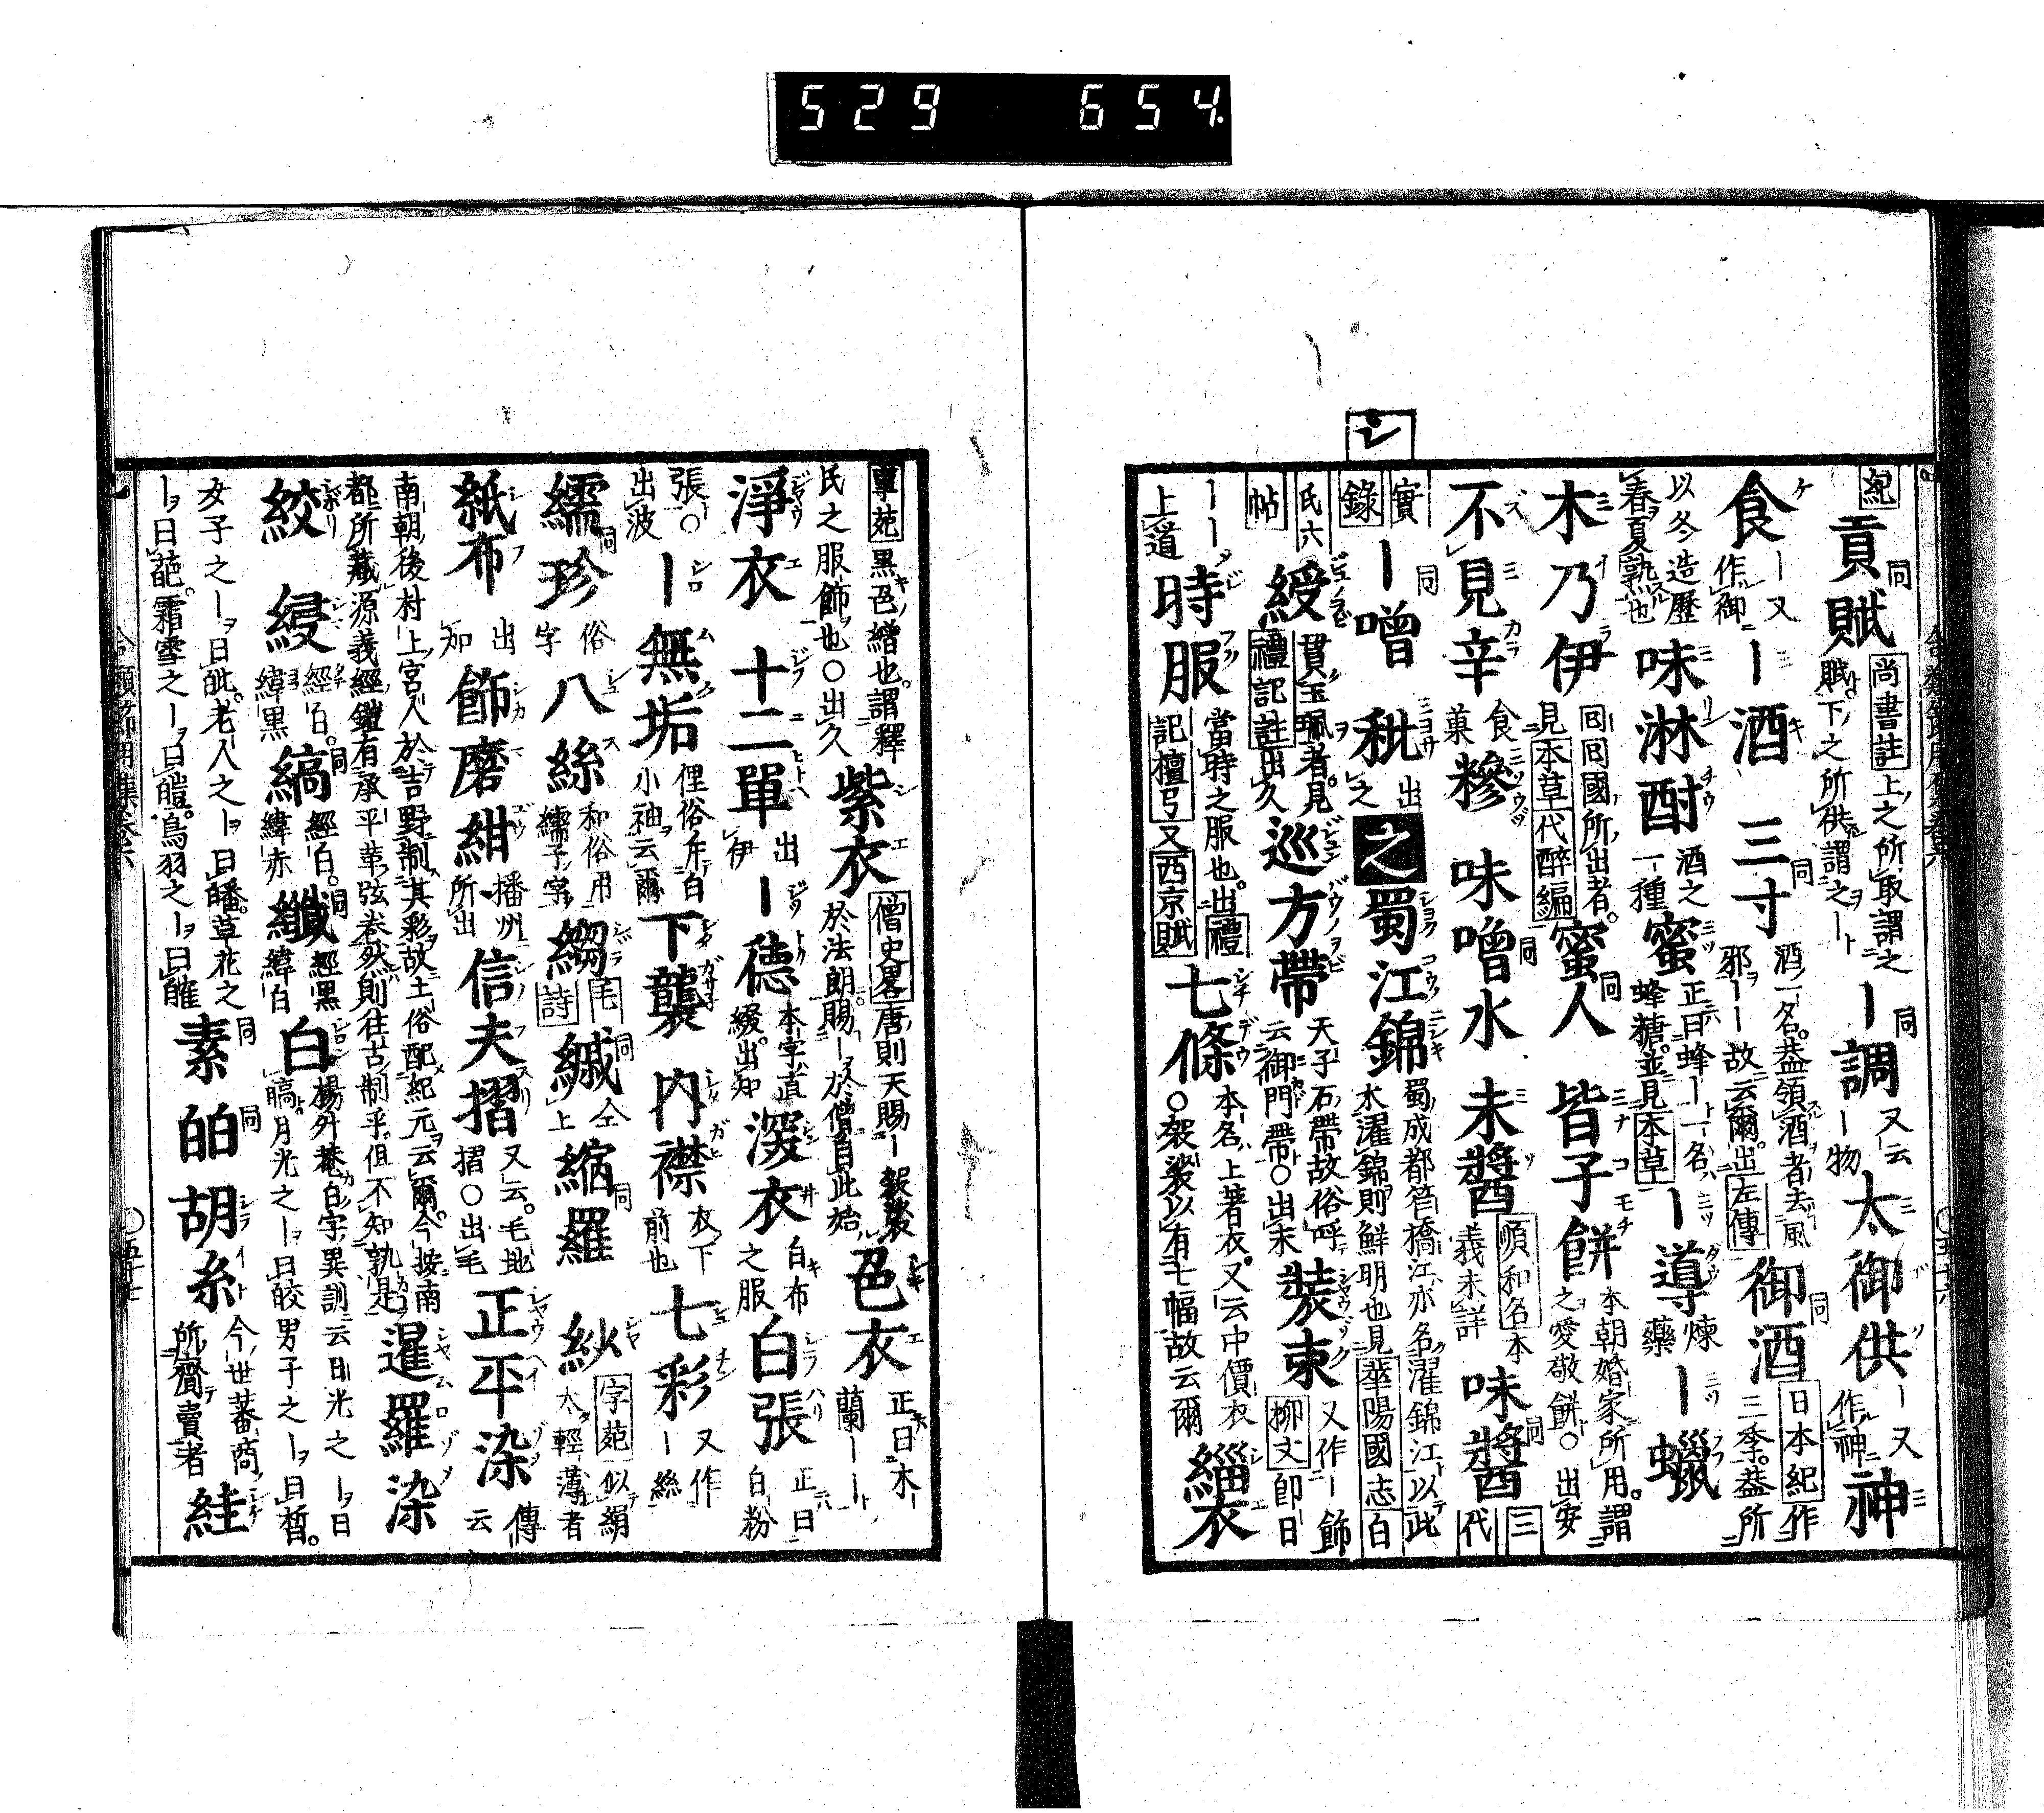 529 654
シ
紀 貢賦 同 尚書註 上之所取謂之賦下之所供謂之ー ー調 同 又云ー物 太御供 ー又作神 神
食 ー又作御 ー酒 三寸 同 酒一名蓋領酒者去風邪ーー故云爾出左傳 御酒 同 日本紀作三季蓋所
以冬造歷春夏熟也 味淋酎 酒之一種 蜜 正曰蜂ー一名蜂糖並見本草 ー導 煉藥 ー蠟
木乃伊 回回國所出者見本草代醉編 蜜人 同 皆子餅 本朝婚家所用謂之愛敬餅○出安
不見辛 食菓 糝 味噌水 同 未醬 順和名本義未詳 味醬 同 三代
實錄 ー噌 同 秕 出之 之 蜀江錦 蜀成都笮橋江亦名濯錦江以此水濯錦則鮮明也見華陽國志白
氏六帖 綬 貫玉珮者見禮記註出久 巡方帶 天子石帶故俗呼云御門帶○出末 裝束 又作ー飾柳文卽曰
ーー上道 時服 當時之服也出禮記檀弓又西京賦 七條 本名上著衣又云中價衣○袈裟以有七幅故云爾 緇衣
事苑 黑色繒也謂釋氏之服飾也○出久 紫衣 僧史畧唐則天賜ー袈裟於法朗賜ー於僧自此始 色衣 正曰木ー蘭ーー
淨衣 十二單 出伊 ー德 本字直綴出知 深衣 白布之服 白張 正曰白粉
張○出波 ー無垢 俚俗斥白小袖云爾 下襲 內襟 衣下前也 七彩 又作ー絲
繻珍 同 俗字 八絲 和俗用繻子字 縐 毛詩 緎 同 仝上 縮羅 同 紗 字苑似絹太輕薄者
紙布 出加 飾磨紺 播州所出 信夫摺 又云毛地摺○出毛 正平染 傳云
南朝後村上宮人於吉野制其彩故土俗配紀元云爾今按南
都所藏源義經鎧有承平革弦卷然則往古制乎但不知孰是 暹羅染
絞 綅 經白緯黑 縞 同 經白緯赤 纖 同 經黑緯白 白 楊外菴白字異訓云日光之ーヲ曰皜月光之ーヲ曰皎男子之ーヲ曰皙
女子之ーヲ曰㿟老人之ーヲ曰皤草花之ーヲ曰葩霜雪之ーヲ曰皚鳥羽之ーヲ曰㿥 素 同 皕 同 胡糸 今世蕃商所齎賣者 絓